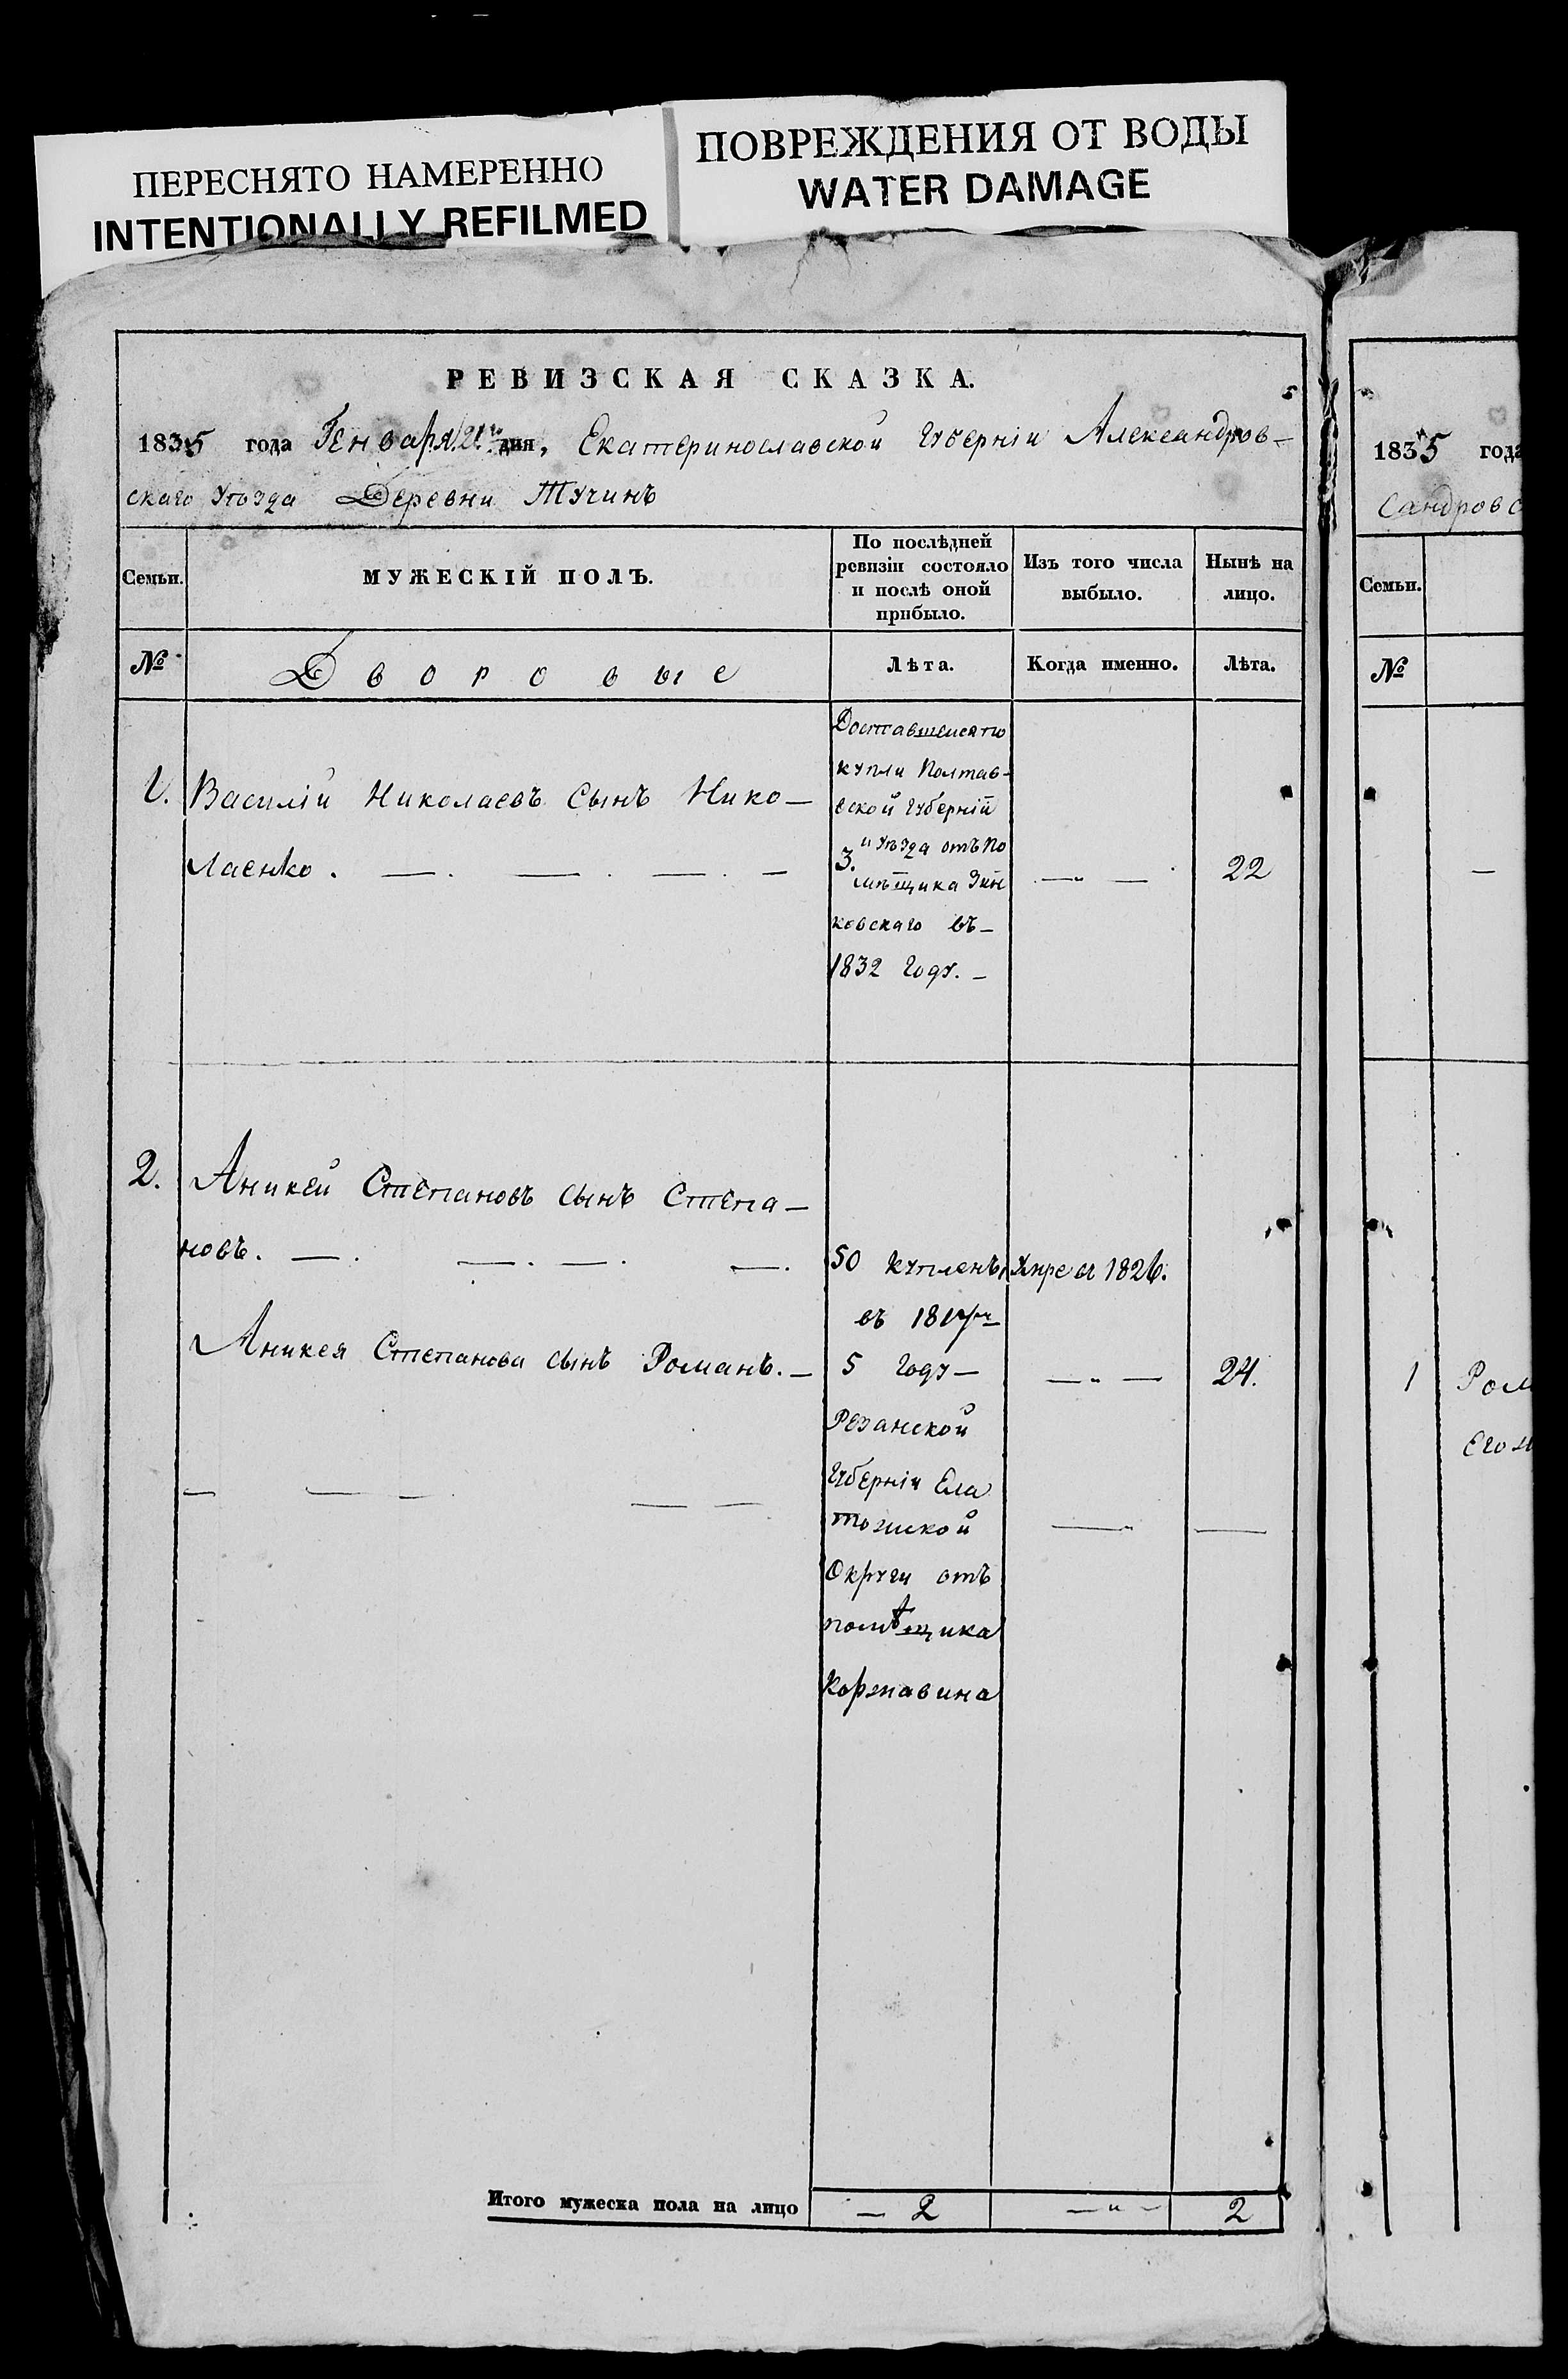 ПЕРЕСНЯТО НАМЕРЕННО
INTENTIONALLY REFILMED
ПОВРЕЖДЕНИЯ ОТ ВОДЫ
WATER DAMAGE
РЕВИЗСКАЯ СКАЗКА.
1835 года Генваря 21 дня, Екатеринославской Губерніи Александров-
скаго Уѣзда Деревни Тучинъ
Семьи.
МУЖЕСКІЙ ПОЛЪ.
По послѣдней
ревизіи состояло
и послѣ оной
прибыло.
Изъ того числа
выбыло.
Нынѣ на
лицо.
№
Дворовые
Лѣта.
Когда именно.
Лѣта.
1. Василій Николаевъ сынъ Нико-
лаенко.
Доставшемся по
купли Полтав-
ской Губерній
и Уѣзда отъ По
3.
мѣщика Зин
ковскаго въ-
1832 Году. -
— „ —
22
2. Аникей Степановъ сынъ Степа-
новъ.
50 купленъ
Умре въ 1826.
въ 1817мъ
Аникея Степанова сынъ Романъ. -
5 Году -
— „ —
24.
Резанской
Губерніи Ела
томской
Округи отъ
помѣщика
Коржавина
Итого мужеска пола на лицо
— 2
— „ —
2
1835 года
сандровс
Семьи.
№
—
1 Ром
Его